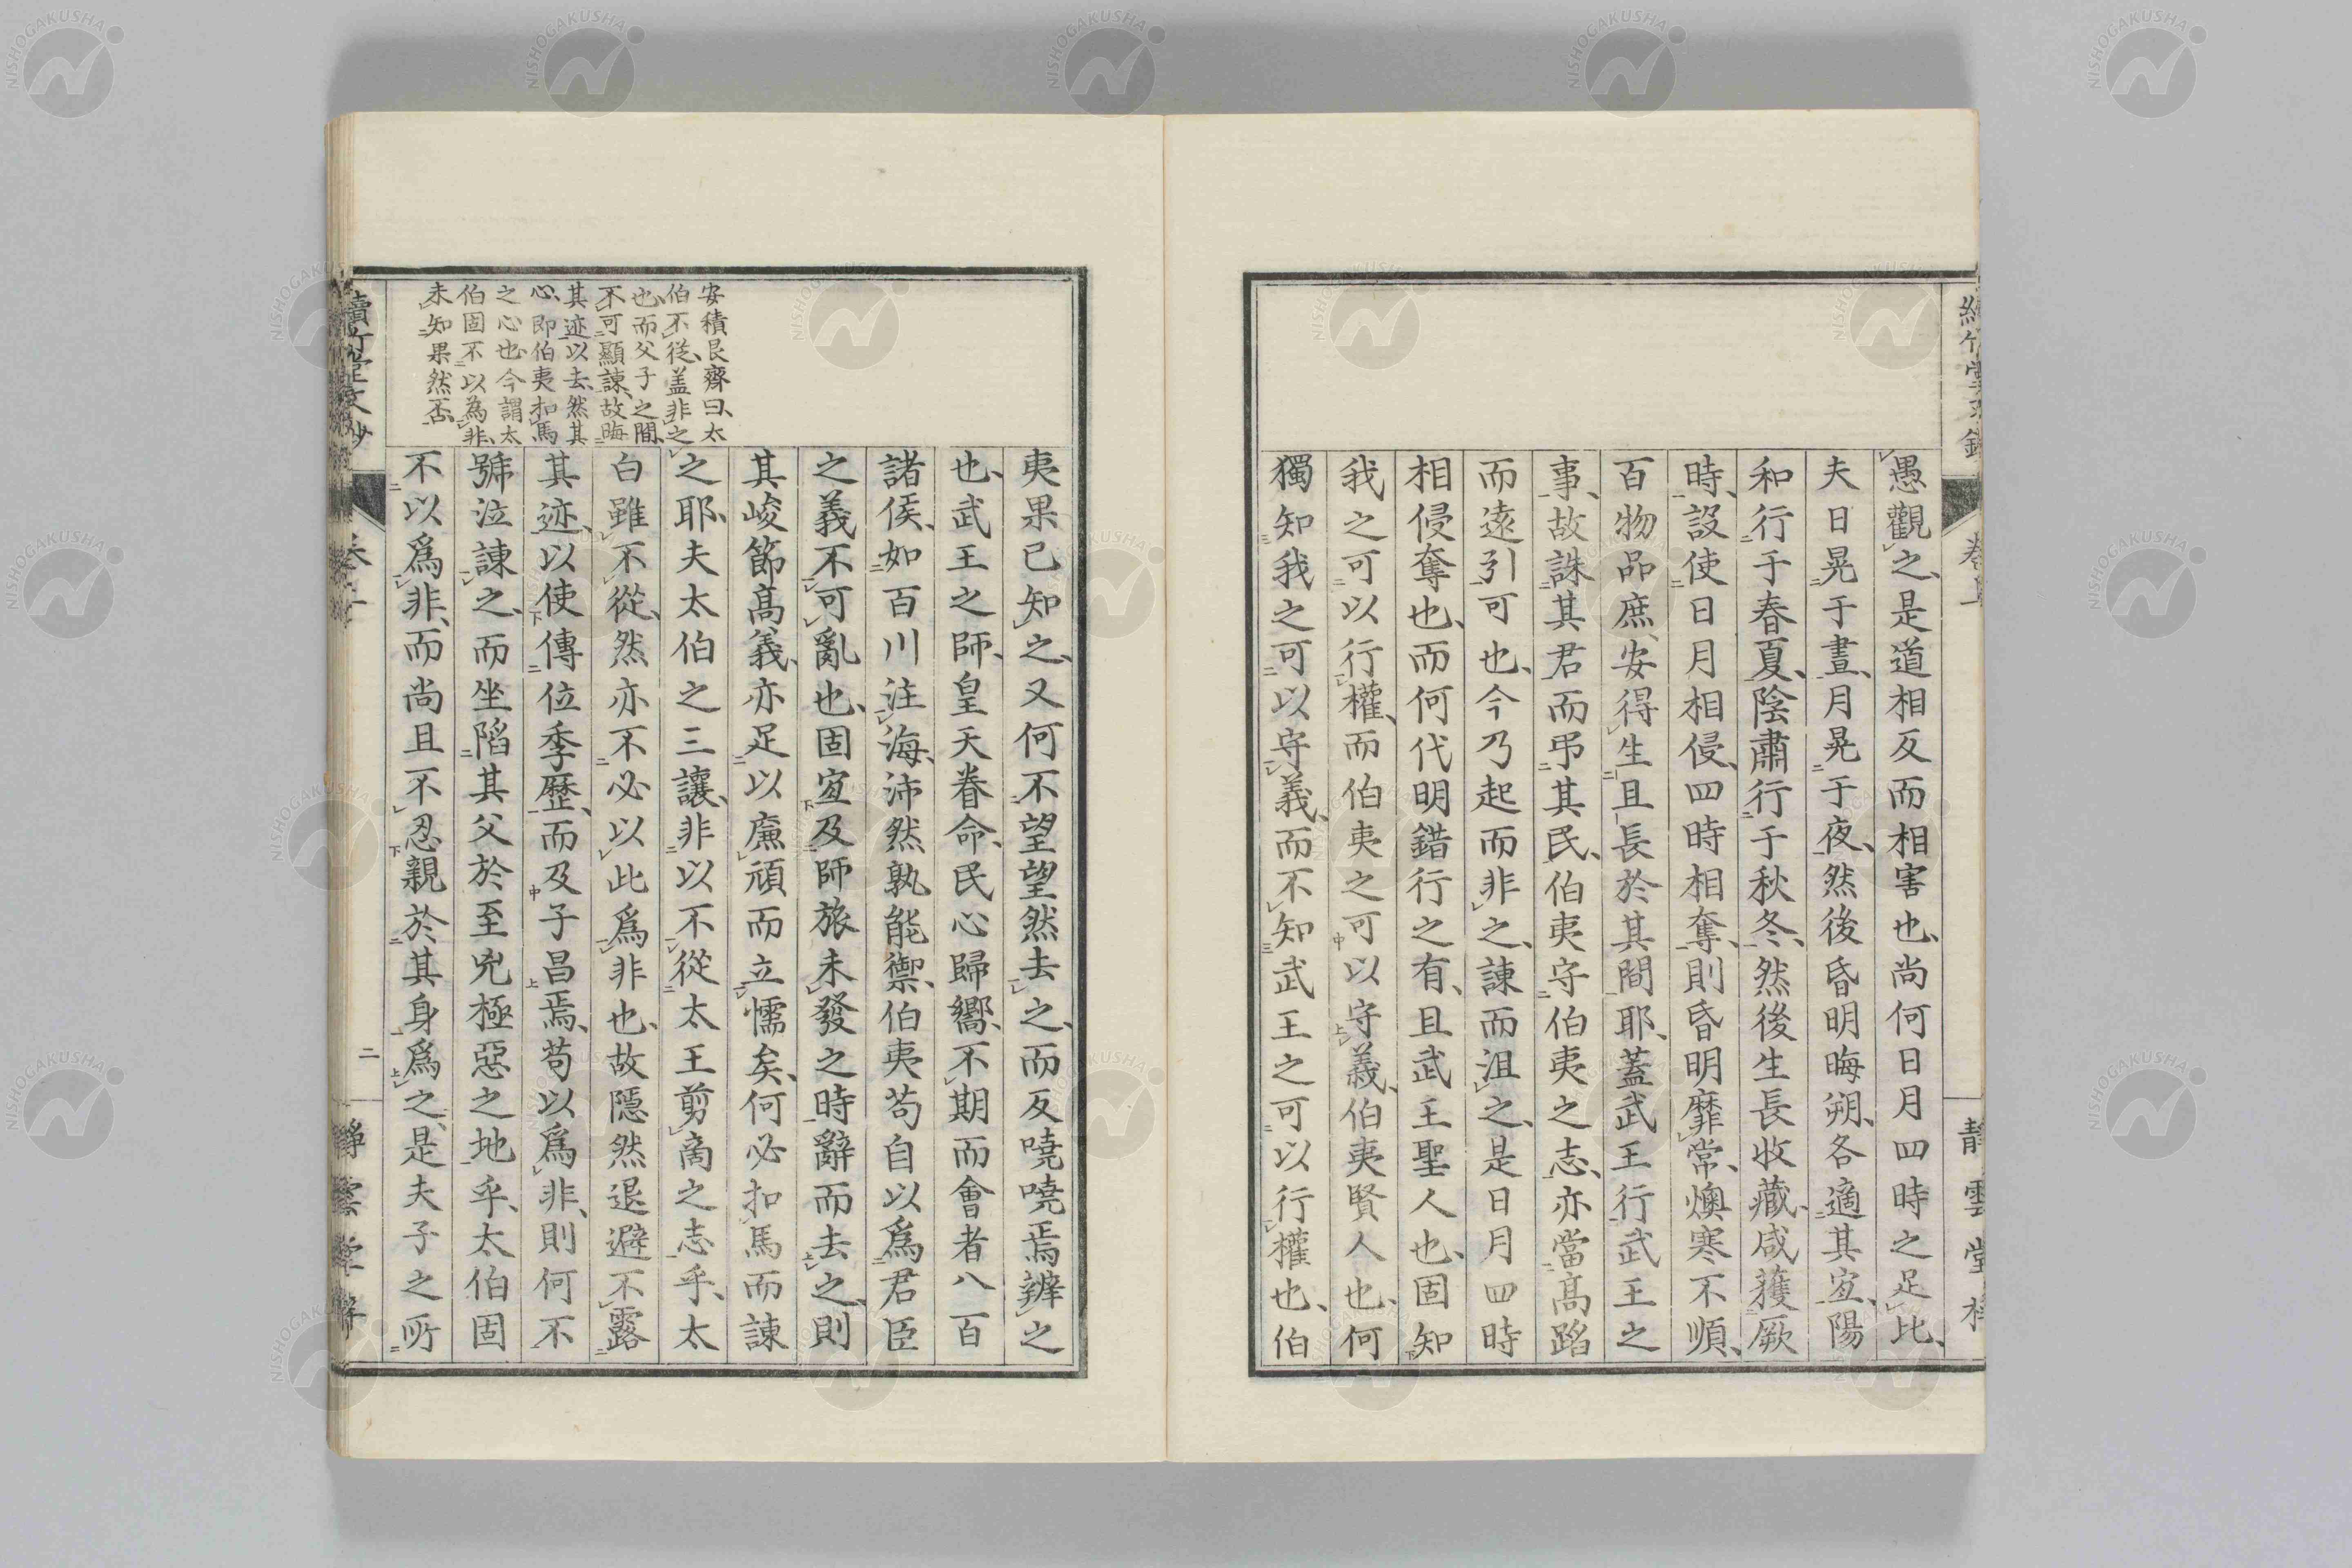 愚觀之、是道相反而相害也、尚何日月四時之足比、
夫日晃于晝、月晃于夜、然後昏明晦朔、各適其宐、陽
和行于春夏、陰肅行于秋冬、然後生長收藏、咸獲厥
時、設使日月相侵、四時相奪、則昏明靡常、燠寒不順、
百物品庶、安得生且長於其間耶、蓋武王行武王之
事、故誅其君而弔其民、伯夷守伯夷之志、亦當高蹈
而遠引可也、今乃起而非之、諫而沮之、是日月四時
相侵奪也、而何代明錯行之有、且武王聖人也、固知
我之可以行權、而伯夷之可以守義、伯夷賢人也、何
獨知我之可以守義、而不知武王之可以行權也、伯
夷果已知之、又何不望望然去之、而反嘵嘵焉辨之
也、武王之師、皇天眷命、民心歸嚮、不期而會者八百
諸侯、如百川注海、沛然孰能禦、伯夷苟自以爲君臣
之義不可亂也、固宐及師旅未發之時辭而去之、則
其峻節高義、亦足以廉頑而立懦矣、何必扣馬而諫
之耶、夫太伯之三讓、非以不從太王剪商之志乎、太
白雖不從、然亦不必以此爲非也、故隱然退避不露
其迹、以使傳位季歷、而及子昌焉、苟以爲非、則何不
號泣諫之、而坐陷其父於至兇極惡之地乎、太伯固
不以爲非、而尚且不忍親於其身爲之、是夫子之所
安積艮齋曰、太
伯不從、盖非之
也、而父子之間、
不可顯諫、故晦
其迹以去、然其
心、即伯夷扣馬
之心也、今謂太
伯固不以為非、
未知果然否、
卷上
靜雲堂
二